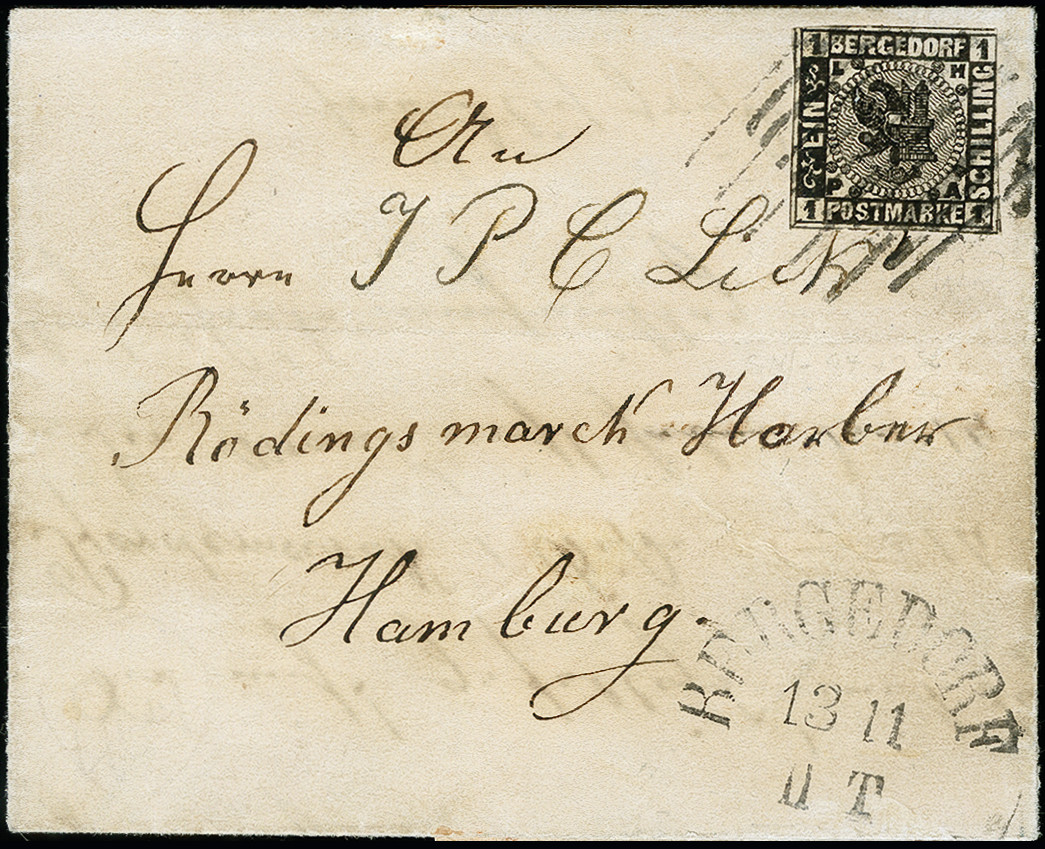 1 BERGEDORF 1
L H
EIN
SCHILLING
P A
1 POSTMARKE 1
An
Herrn J P C Lick
Rödingsmarch Harber
Hamburg.
BERGEDORF
13 11
II T